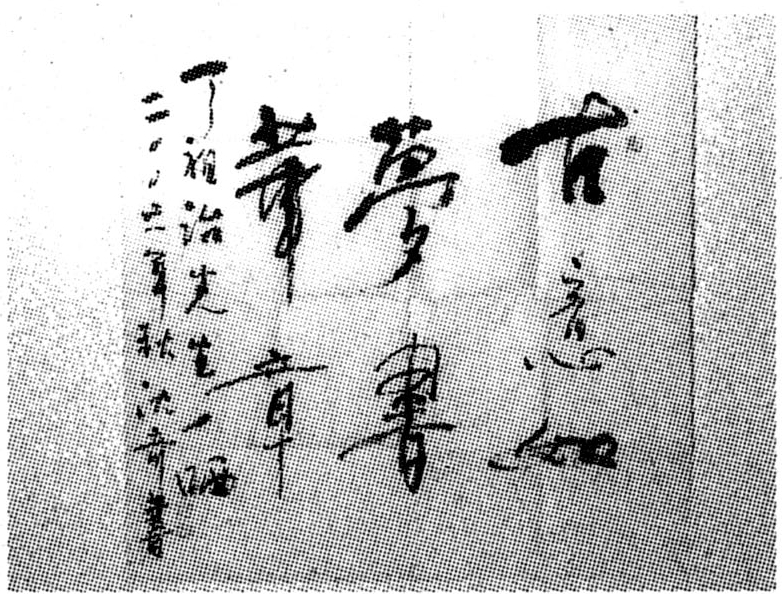 古意如
夢書
華章
丁祖诒先生一哂
二〇〇六年秋沈奇書